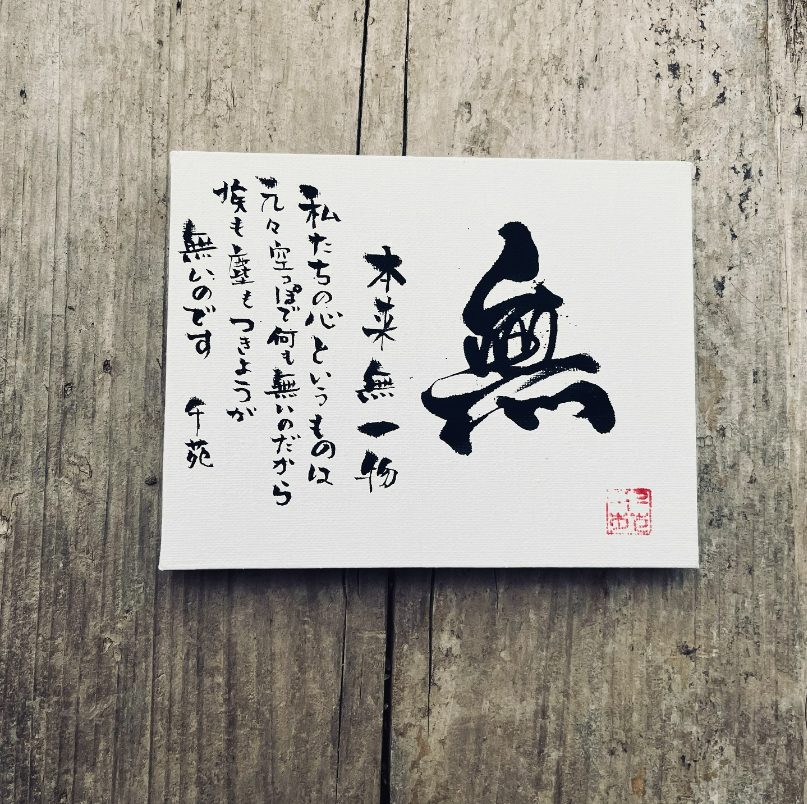 無
本来無一物
私たちの心というものは
元々空っぽで何も無いのだから
埃も塵もつきようが
無いのです
千苑